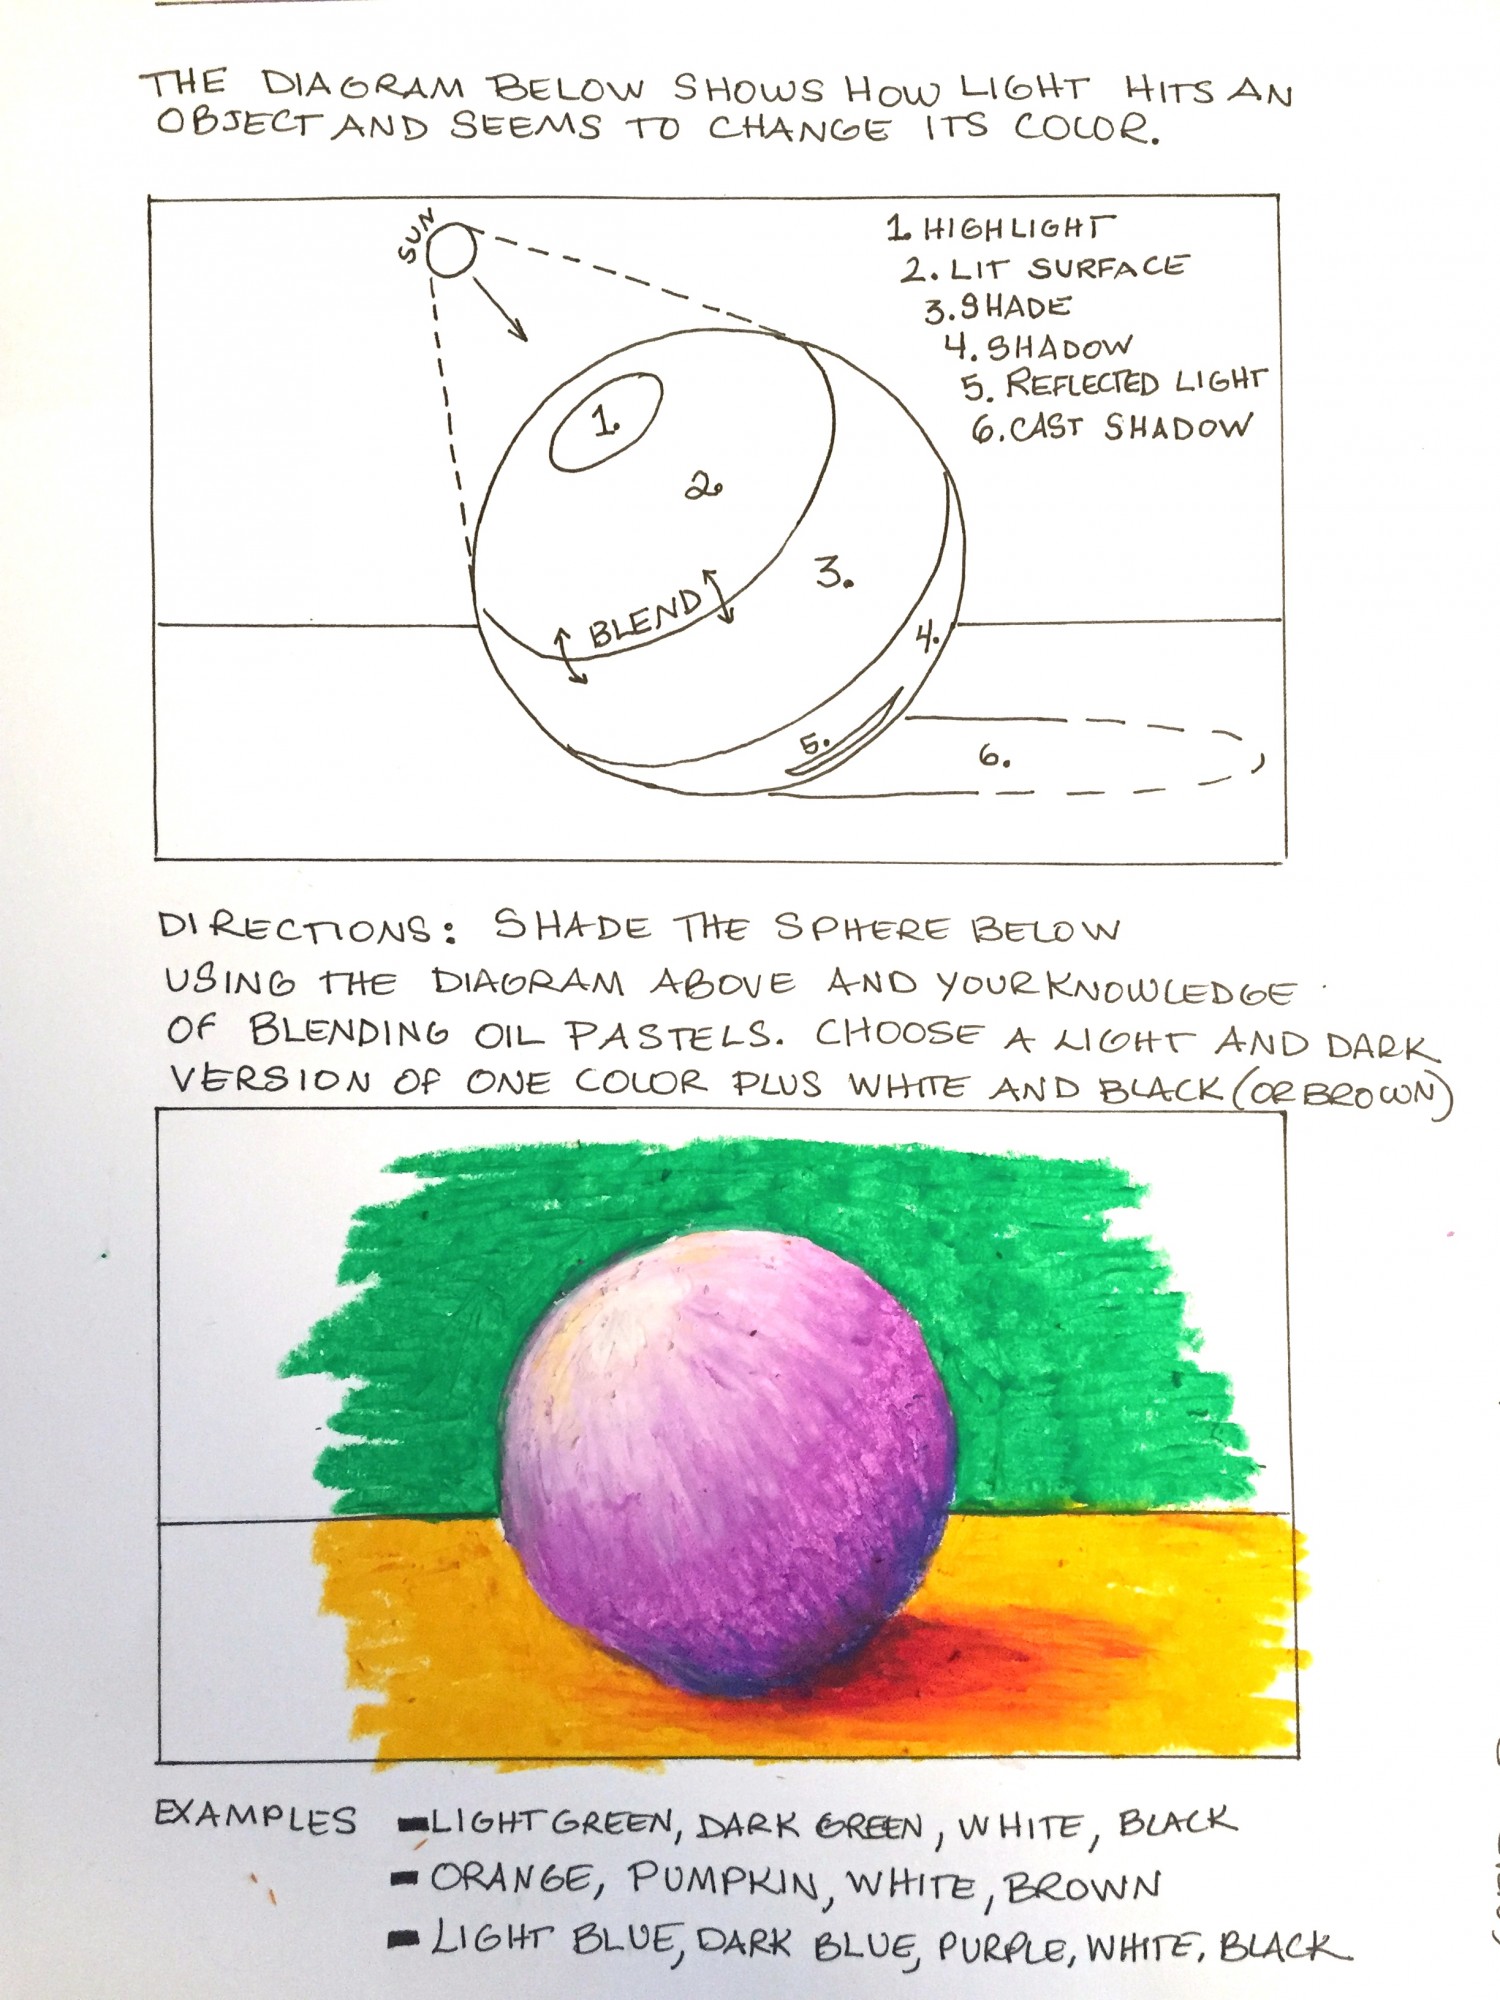 THE DIAGRAM BELOW SHOWS HOW LIGHT HITS AN
OBJECT AND SEEMS TO CHANGE ITS COLOR.
SUN
1. HIGHLIGHT
2. LIT SURFACE
3. SHADE
4. SHADOW
5. REFLECTED LIGHT
6. CAST SHADOW
1.
2.
3.
BLEND
4.
5.
6.
DIRECTIONS: SHADE THE SPHERE BELOW
USING THE DIAGRAM ABOVE AND YOUR KNOWLEDGE
OF BLENDING OIL PASTELS. CHOOSE A LIGHT AND DARK
VERSION OF ONE COLOR PLUS WHITE AND BLACK (OR BROWN)
EXAMPLES - LIGHT GREEN, DARK GREEN, WHITE, BLACK
- ORANGE, PUMPKIN, WHITE, BROWN
- LIGHT BLUE, DARK BLUE, PURPLE, WHITE, BLACK